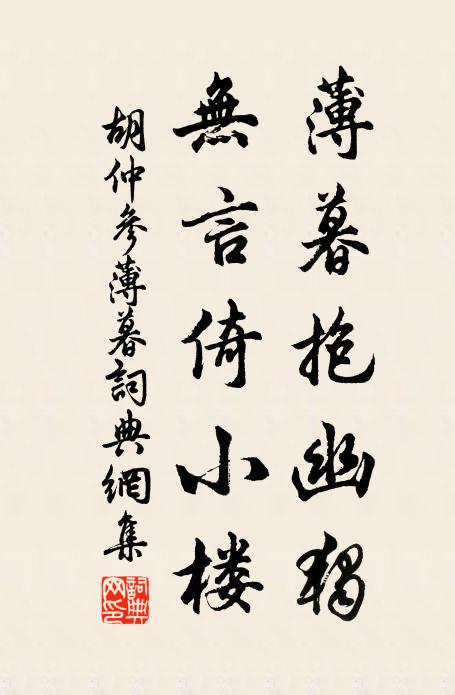 薄暮抱幽獨
無言倚小楼
胡仲參薄暮詞典網集
詞典網印